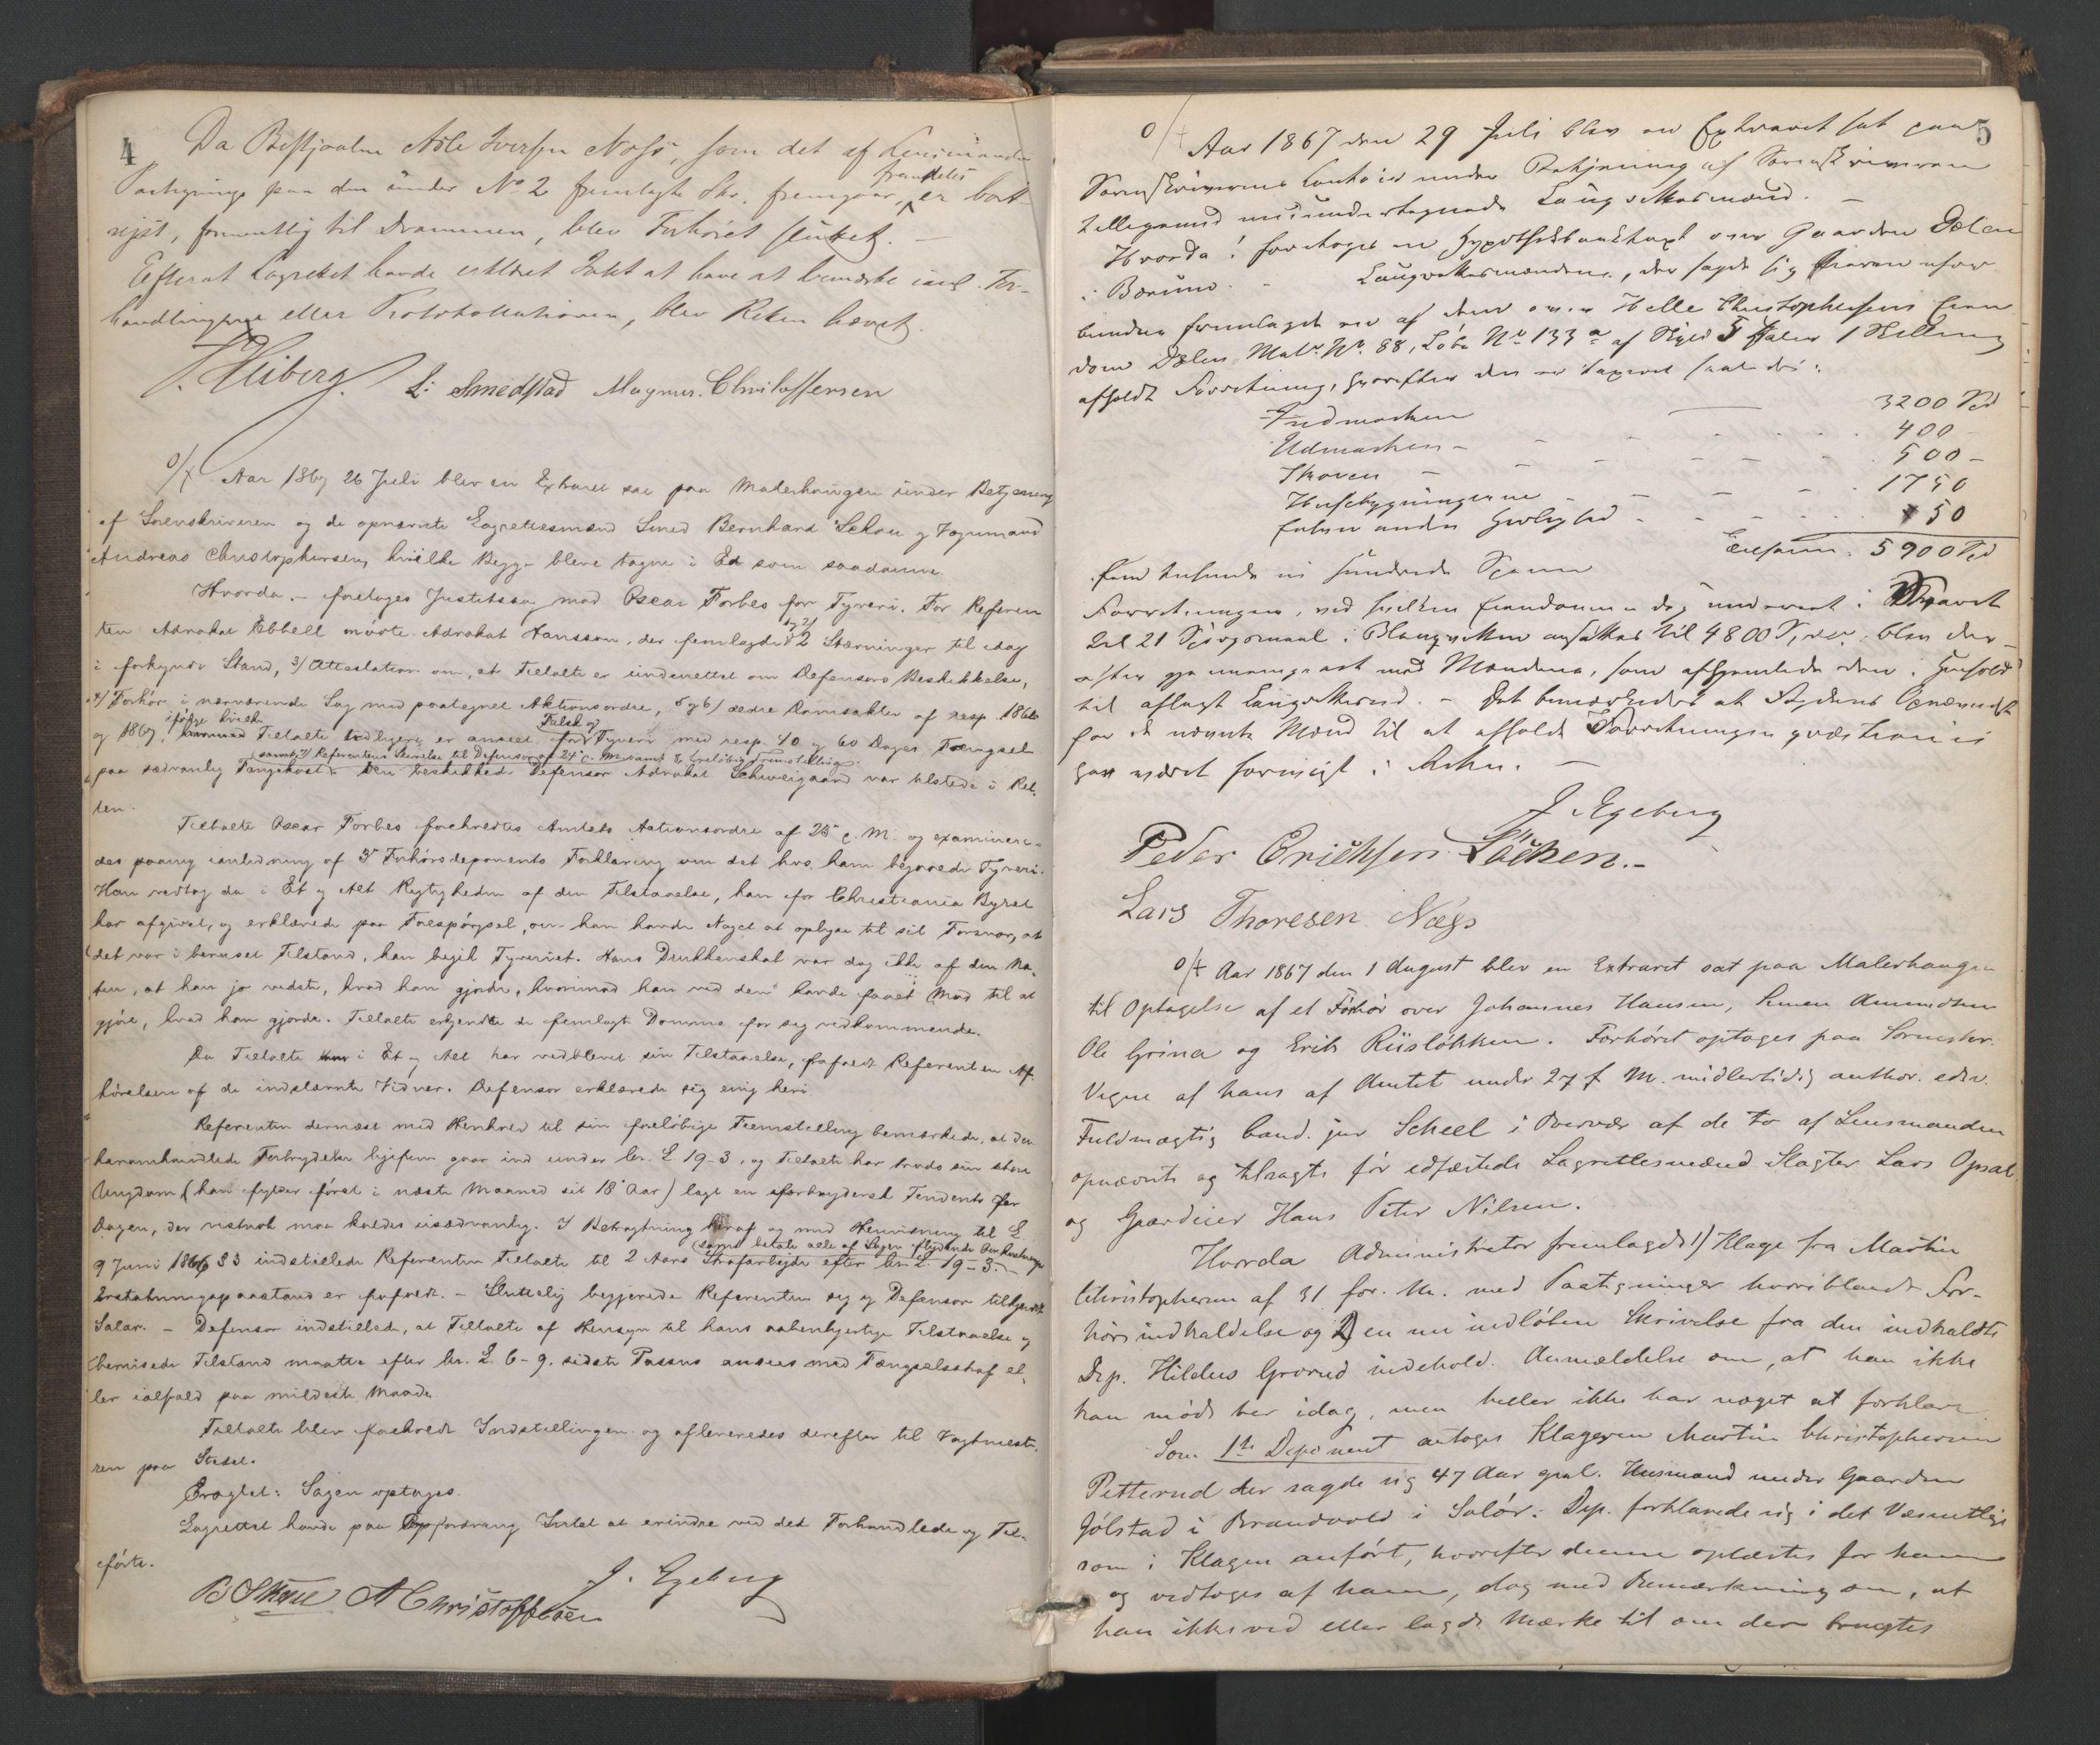 4
Da Bestjaalne Atle Iversen Næss, som det af Lensmandens
Paategning paa den under No 2 fremlagte Skr. fremgaar, fremdeles er bort-
rejst, formentlig til Drammen, blev Forhöret sluttet. —
Efterat Lagrettet havde erklæret Intet at have at bemærke imod For-
handlingerne eller Protokollationen, blev Retten hævet.
Hiberg. L: Smedstad Magnus. Christoffersen
o/ Aar 1867 26 Juli blev en Extraret sat paa Malerhaugen under Betjening
af Sorenskriveren og de opnævnte Lagrettesmænd Smed Bernhard Schou og Vognmand
Andreas Christophersen, hvilke Begge bleve tagne i Ed som saadanne.
Hvorda. – foretoges Justitssag mod Oscar Forbes for Tyveri. For Referen
ten Advokat Ebbell mödte Advokat Hansson, der fremlagde 1 og 2/ 2 Stævninger til idag
i forkyndt Stand, 3/ Attestation om, at Tiltalte er underrettet om Defensors Beskikkelse,
4/ Forhör i nærværende Sag med paategnet Aktionsordre, 5 og 6/ ældre Domsakter af resp. 1866
og 1867, ifölge hvilke Tiltalte tidligere er anseet for Falsk og Tyveri med resp. 40 og 60 Dages Fængsel
paa sædvanlig Fangekost samt 7/ Referentens Skrivelse til Defensor af 24 c. M. samt 8 foreløbig Fremstilling. Den beskikkede Defensor Advokat Schweigaard var tilstede i Ret-
ten.
Tiltalte Oscar Forbes foreholdtes Amtets Actionsordre af 25 c. M. og examinere-
des paany i anledning af 3die Forhörsdeponents Forklaring om det hos ham begaaede Tyveri.
Han vedtog da i Et og Alt Rigtigheden af den Tilstaaelse, han for Christiania Byret
har afgivet, og erklærede paa Forespörgsel, om han havde Noget at oplyse til sit Forsvar, at
det var i beruset Tilstand, han begik Tyveriet. Hans Drukkenskab var dog ikke af den Na-
tur, at han jo vidste, hvad han gjorde, hvorimod han ved den havde faaet Mod til at
gjöre, hvad han gjorde. Tiltalte erkjendte de fremlagte Domme for sig vedkommende.
Da Tiltalte i Et og Alt har vedblevet sin Tilstaaelse, frafaldt Referenten Af-
hörelsen af de indstævnte Vidner. Defensor erklærede sig enig heri
Referenten dernæst med Henhold til sin foreløbige Fremstilling bemærkede, at den
heromhandlede Forbrydelse ligefrem gaar ind under kr. L 19–3, og Tiltalte har trods sin store
Ungdom (han fylder först i næste Maaned sit 18de Aar) lagt en forbrydersk Tendents for
Dagen, der vistnok maa kaldes usædvanlig. I Betragtning heraf og med Henvisning til L.
9 Juni 1866 § 3 indstillede Referenten Tiltalte til 2 Aars Strafarbejde efter kr. L. 19–3. samt betale alle af Sagen flydende Omkostninger
Erstatningspaastand er frafaldt. – Sluttelig begjerede Referenten sig og Defensor tilkjendt
Salær. – Defensor indstillede, at Tiltalte af Hensyn til hans aabenhjertige Tilstaaelse og
berusede Tilstand maatte efter kr. L. 6–9. sidste Passus ansees med Fængselsstraf el-
ler ialfald paa mildeste Maade.
Tiltalte blev foreholdt Indstillingen og afleveredes derefter til Vagtmeste-
ren paa Stedet.
Eragtet: Sagen optages.
Lagrettet havde paa Opfordring Intet at erindre ved det Forhandlede og Til-
förte.
B Schou A Christoffersen J. Egeberg
5
o/ Aar 1867 den 29 Juli blev en Extraret sat paa
Sorenskriverens Contoir under Betjening af Sorenskriveren
tilligemed undertegnede Laugrettesmænd. –
Hvorda! foretoges en Hypothekbanktaxt over Gaarden Dælen
i Bærum. – Laugrettesmændene, der sagde sig herom ufor-
bundne fremlagde en af dem over Helle Christophersens Eien
dom Dælen Matr. No. 88, Löbe No 133 a af Skyld 5 Daler 1 Skilling
afholdt Forretning, hvorefter den er taxeret saaledes:
Indmarken 3200 Spd
Udmarken – 400 –
Skoven – 500 –
Husebygningerne – 1750
Enhver anden Herlighed – 50
Tilsam. 5900 Spd
fem tusinde ni hundrede Species
Forretningen, ved hvilken Eiendommen dog underet i Udfaret
til 21 Sjirgsmaal i Blanquetten ansættes til 4800 Spd, blev der-
efter gjennemgaaet med Mændene, som afhjemlede den i Henhold
til aflagt Laugrettesed. – Det bemærkedes at Fogdens Opnævnelse
for de nævnte Mænd til at afholde Forretningen quæstionis
har været forevist i Retten. –
J Egeberg
Peder Erichsen Löcken.–
Lars Thoresen Næss
o/ Aar 1867 den 1 August blev en Extraret sat paa Malerhaugen
til Optagelse af et Forhör over Johannes Hansen, Simen Amundsen
Ole Grina og Erik Riislökken. Forhöret optages paa Sorenskr.
Vegne af hans af Amtet under 27 f. M. midlertidig author. edsv.
Fuldmægtig Cand. jur Scheel i Overvær af de to af Lensmanden
opnævnte og tilsagte för edfæstede Lagrettesmænd Slagter Lars Opsal
og Gaardeier Hans Peter Nilsen.
Hvorda Administrator fremlagde 1) Klage fra Martin
Christophersen af 31 for. M. med Paategninger hvoriblandt For-
hörs indkaldelse og 2) en nu indløben Skrivelse fra den indkaldte
Dep. Hildeus Grorud indehold. Anmeldelse om, at han ikke
kan möde her idag, men heller ikke har noget at forklare
Som 1ste Deponent antoges Klageren Martin Christophersen
Petterud der sagde sig 47 Aar gml. Husmand under Gaarden
Jölstad i Brandvold i Solör. Dep. forklarede sig i det Væsentlige
som i Klagen anfört, hvorefter denne oplæstes for ham
og vedtoges af ham, dog med Bemærkning om, at
han ikke ved eller lagde Mærke til om der brugtes